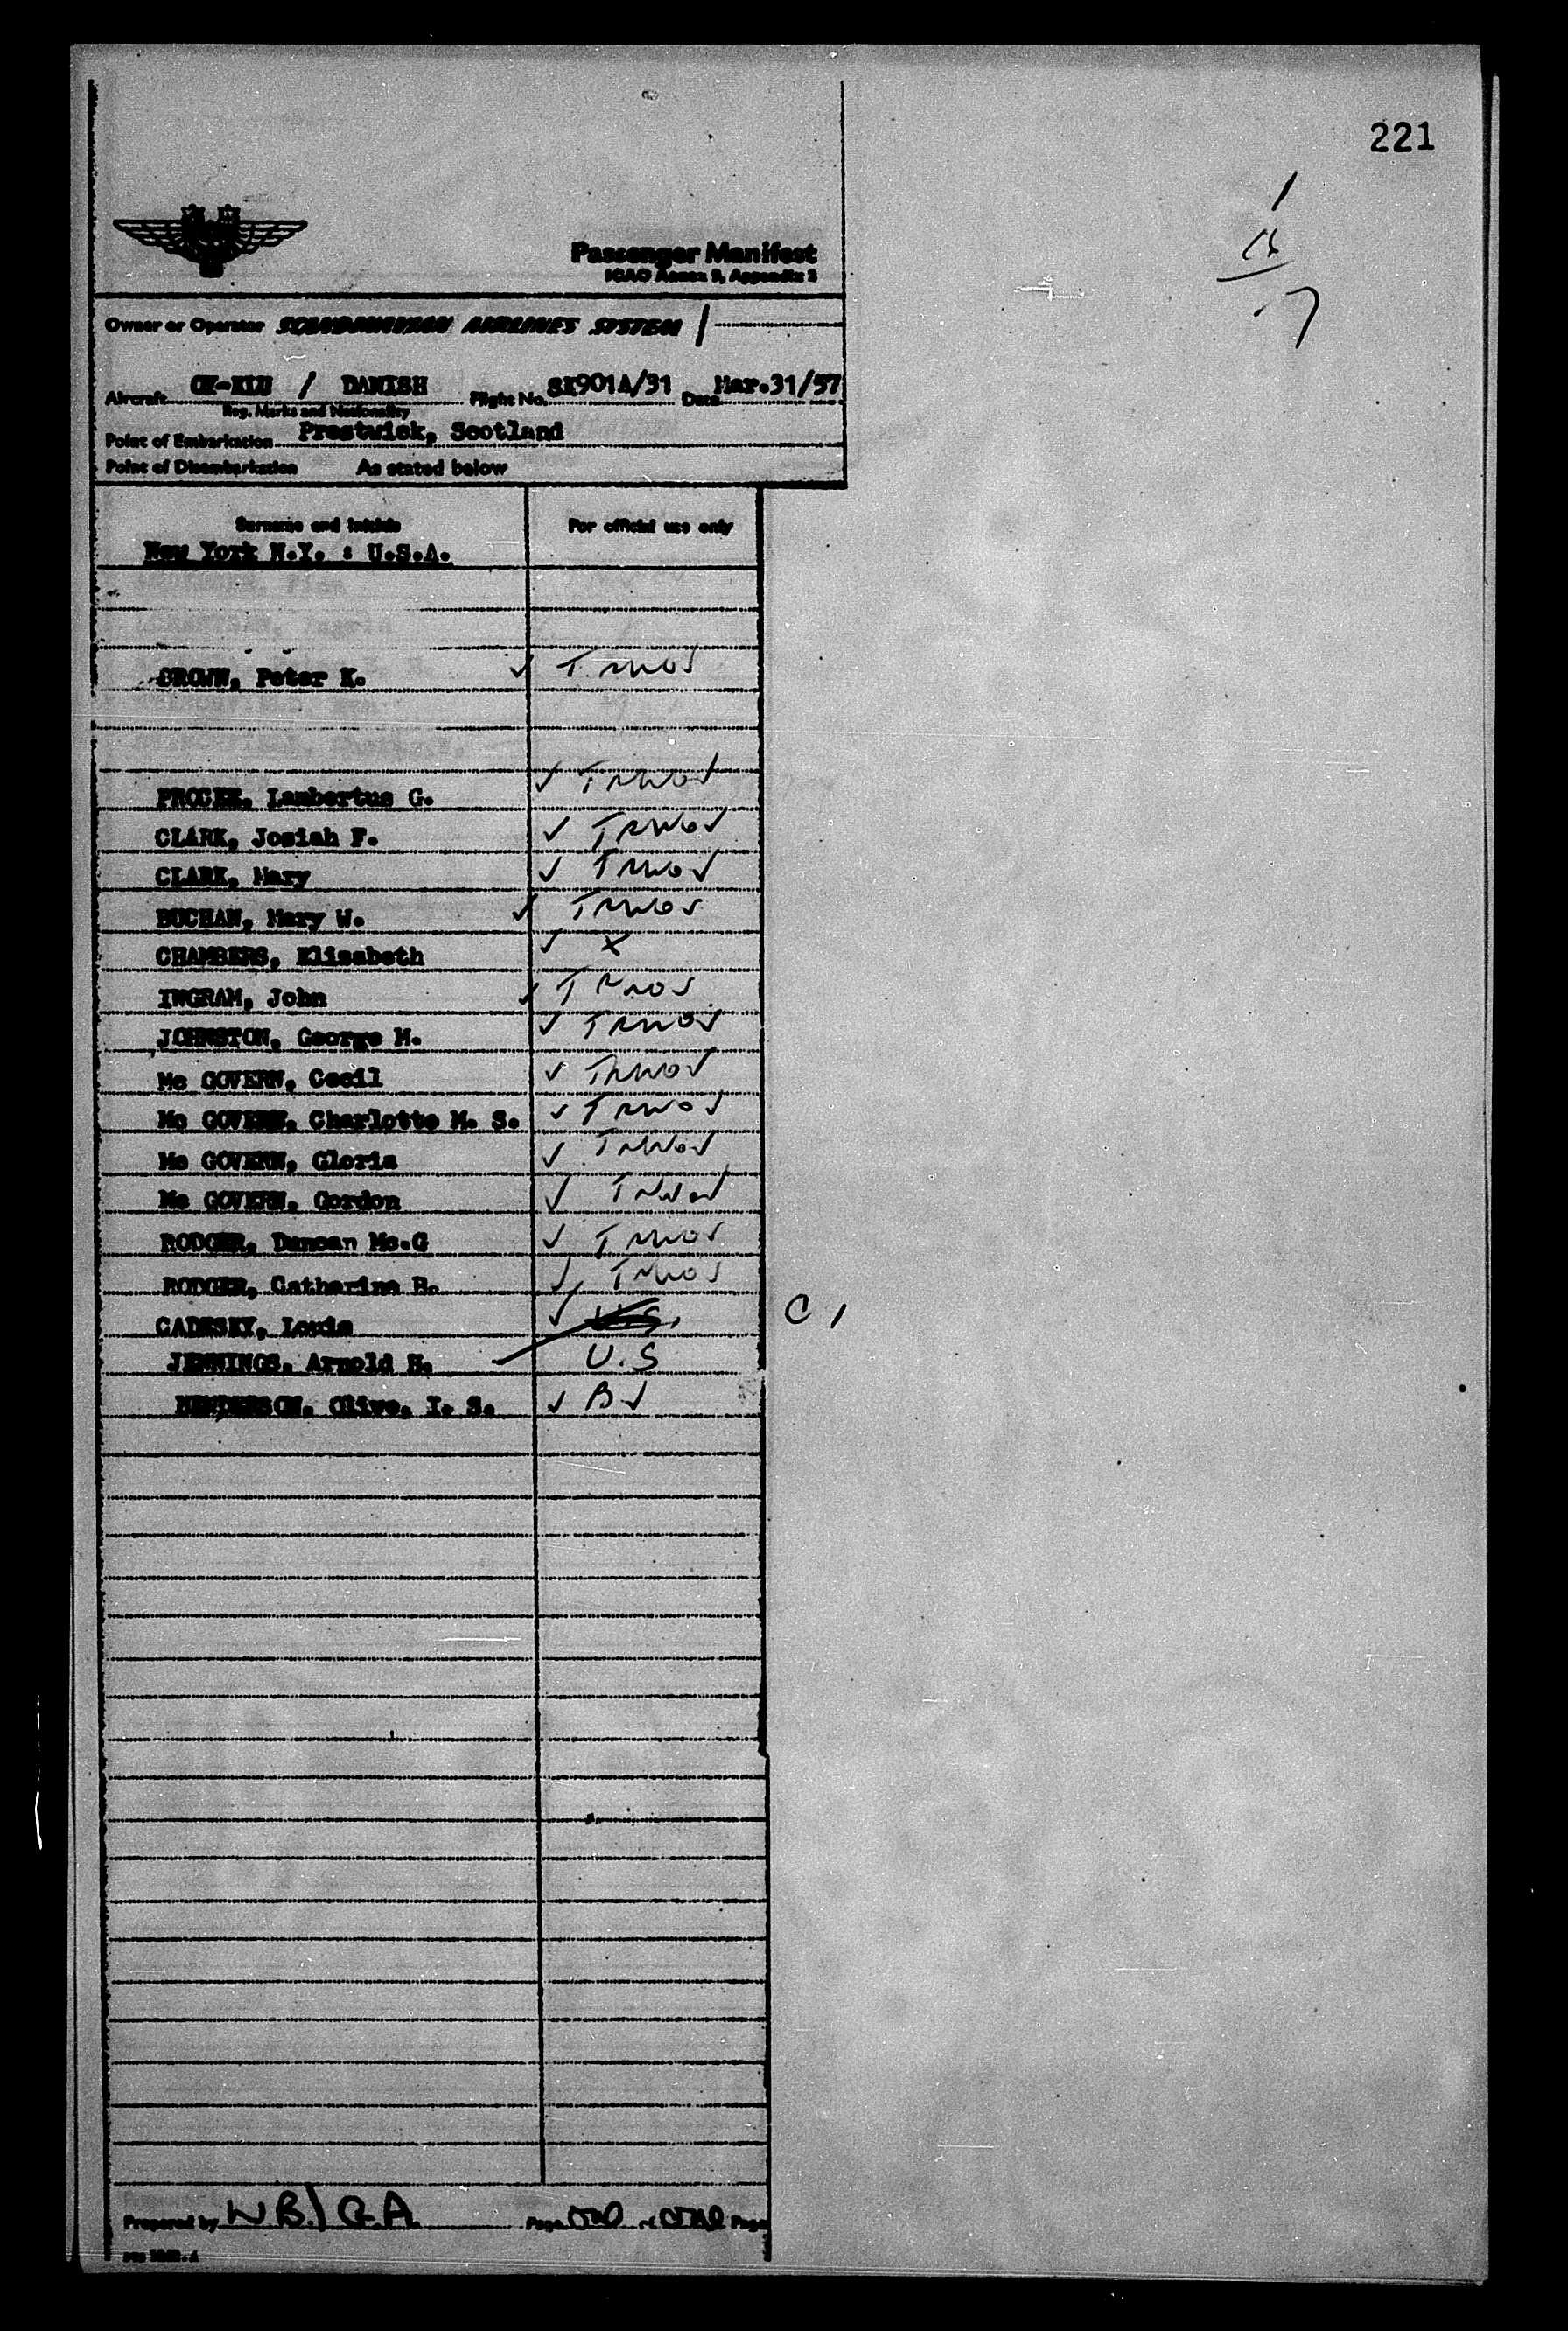 221
1
Passenger Manifest
ICAO Annex 9, Appendix 2
Owner or Operator SCANDINAVIAN AIRLINES SYSTEM
Aircraft / DANISH Flight No. SK901A/31 Date Mar.31/57
Reg. Marks and Nationality
Point of Embarkation Prestwick, Scotland
Point of Disembarkation As stated below
Surname and Initials For official use only
New York N.Y. : U.S.A.
Peter K. ✓
Lambertus G. ✓
CLARK, Josiah F. ✓
CLARK, Mary ✓
BUCHAN, Mary W. ✓
CHAMBERS, Elisabeth ✓ X
INGRAM, John ✓
JOHNSTON, George M. ✓
Mc GOVERN, Cecil ✓
Mc GOVERN, Charlotte M. S. ✓
Mc GOVERN, Gloria ✓
Mc GOVERN, Gordon ✓
RODGER, Duncan Mc.G ✓
RODGER, Catharine ✓
CADESKY, Louis ✓ U.S. C
JENNINGS, Arnold H. U.S
Olive, I. S. ✓ B
Prepared by W B./G.A. Page of Page